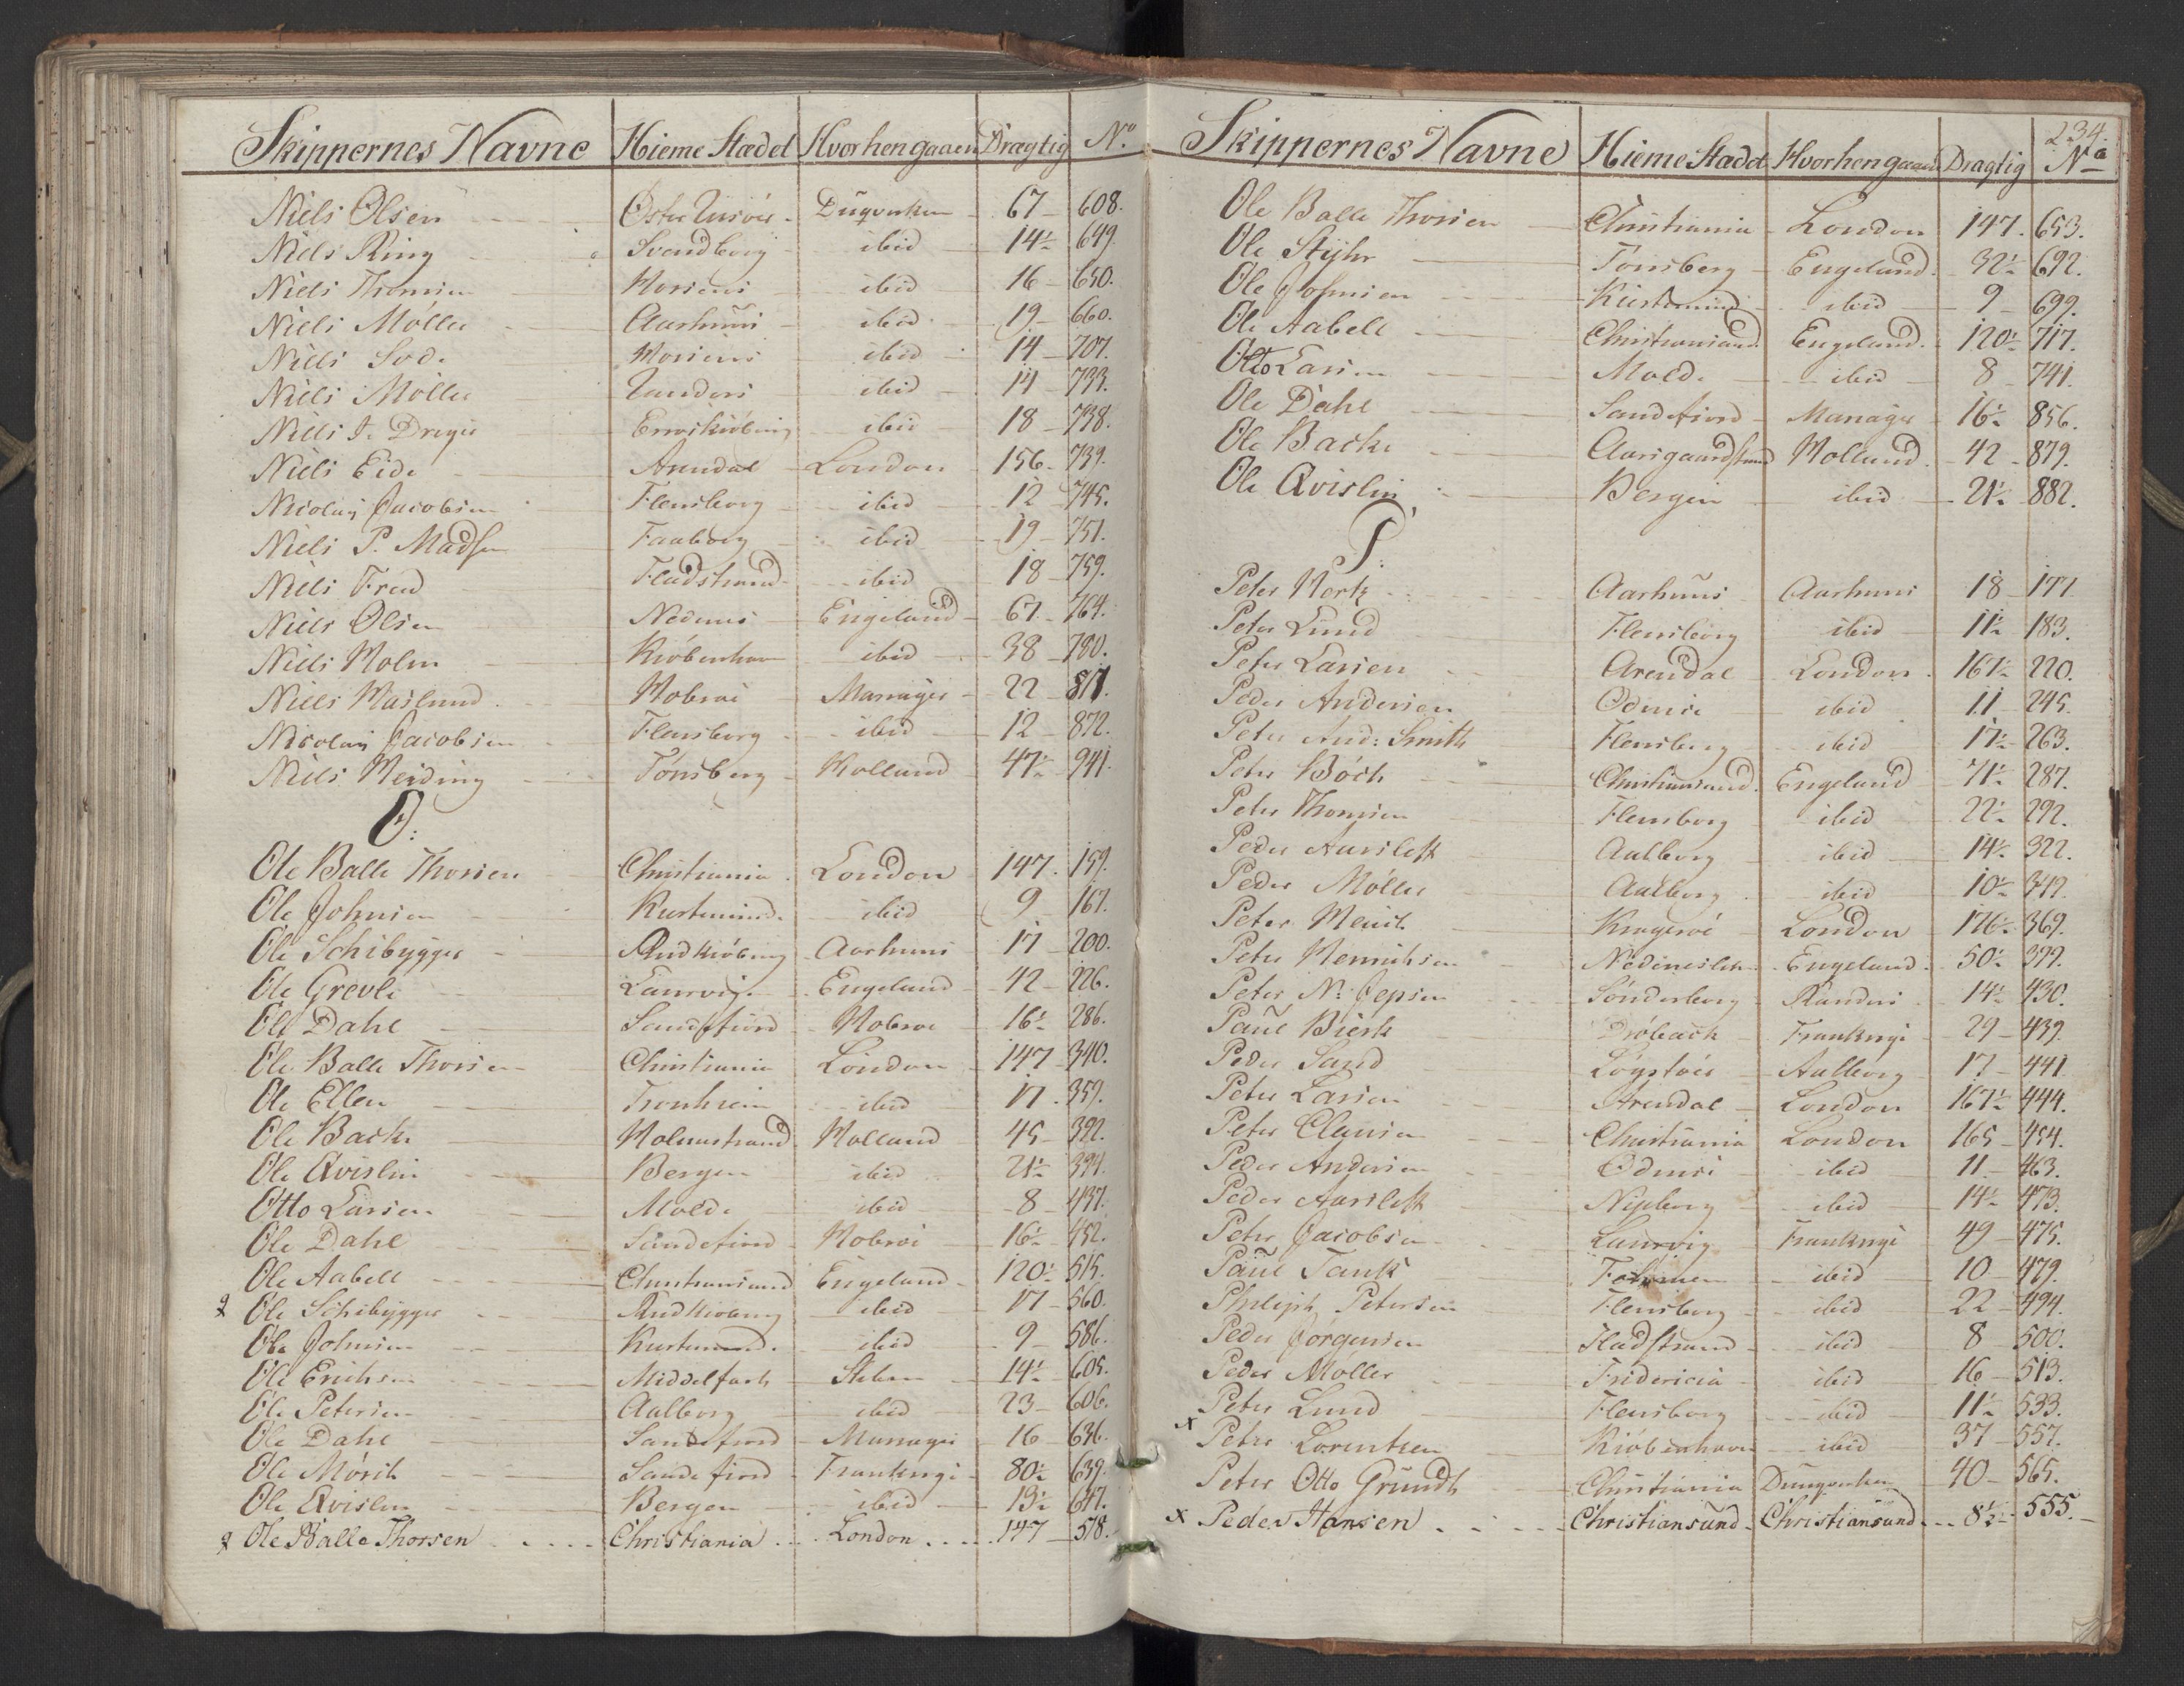 Skippernes Navne Hieme Stædet Hvorhen gaaen Drægtig No
Niels Olsen Øster Riisöer Düqverken 67 608.
Niels Ring Svendborg ibid 14½ 649.
Niels Thomsen Horsens ibid 16 650.
Niels Möller Aarhuus ibid 19 660.
Niels Horsens ibid 14 707.
Niels Möller Randers ibid 14 733.
Niels J. Dreyer Erroskiöbing ibid 18 738.
Niels Eide Arendal London 156 739.
Nicolay Jacobsen Flensborg ibid 12 745.
Niels P. Madsen Faaborg ibid 19 751.
Niels Fred Fladstrand ibid 18 759.
Niels Olsen Nedenes Engeland 67 764.
Niels Holm Kiöbenhavn ibid 38 780.
Niels Haslund Hobroe Mariager 22 811.
Nicolay Jacobsen Flensborg ibid 12 872.
Niels Heiding Tönsberg Holland 47½ 941.
O:
Ole Balle Thorsen Christiania London 147 159.
Ole Johnsen Kierteminde ibid 9 167.
Ole Schibygger Rudkiöbing Aarhuus 17 200.
Ole Grevle Laurvig Engeland 42 226.
Ole Dahl Sandefiord Hobroe 16½ 286.
Ole Balle Thorsen Christiania London 147 340.
Ole Ellen Tronhiem ibid 17 359.
Ole Backe Holmestrand Holland 45 392.
Ole Qvislin Bergen ibid 21½ 394.
Otto Larsen Molde ibid 8 437.
Ole Dahl Sandefiord Hobroe 16½ 452.
Ole Aabell Christiansand Engeland 120½ 515.
Ole Schibygger Rudkiobing ibid 17 560.
Ole Johnsen Kierteminde ibid 9 586.
Ole Erichsen Middelfart 14½ 605.
Ole Petersen Aalborg ibid 23 606.
Ole Dahl Sandefiord Mariager 16 636.
Ole Mörch Sandefiord Frankrige 80½ 639.
Ole Qvislin Bergen ibid 13½ 647.
Ole Balle Thorsen Christiania London 147 578.
234.
Skippernes Navne Hieme Stædet Hvorhen gaaen Drægtig No
Ole Balle Thorsen Christiania London 147 653.
Ole Stÿhr Tönsberg Engeland 32½ 692.
Ole Johnsen Kierteminde ibid 9 699.
Ole Aabell Christiansand Engeland 120½ 717.
Otto Larsen Molde ibid 8 741.
Ole Dahl Sandefiord Mariager 16½ 856.
Ole Backe Aarsgaardstrand Holland 42 879.
Ole Qvislin Bergen ibid 21½ 882.
P:
Peter Hertz Aarhuus Aarhuus 18 177.
Peter Lund Flensborg ibid 11½ 183.
Peter Larsen Arendal London 167½ 220.
Peder Andersen Odense ibid 11 245.
Peter And: Smith Flensborg ibid 17½ 263.
Peter Böch Christiansand Engeland 71½ 287.
Peter Thomsen Flensborg ibid 22½ 292.
Peder Aarsleff Aalborg ibid 14½ 322.
Peder Möller Aalborg ibid 10½ 342.
Peter Kragerøe London 176½ 369.
Peter Henrichsen Nedenes Engeland 50½ 399.
Peter N: Jepsen Sönderborg Randers 14½ 430.
Paul Bierk Dröback Frankrige 29 439.
Peder Sand Lögstöer Aalborg 17 441.
Peter Larsen Arendal London 167½ 444.
Peter Clausen Christiania London 165 454.
Peder Andersen Odense ibid 11 463.
Peder Aarsleff Nyeborg ibid 14½ 473.
Peter Jacobsen Laurvig Frankrige 49 475.
Paul Tank ibid 10 479.
Philiph Petersen Flensborg ibid 22 494.
Peder Jörgensen Fladstrand ibid 8 500.
Peder Moller Fridericia ibid 16 513.
Peter Lund Flensborg ibid 11½ 533.
x Peter Lorentzen Kiöbenhavn ibid 37 557.
Peter Otto Grundt Christiania Dunqverken 40 565.
x Peder Hansen Christiansund Christiansund 8½ 555.